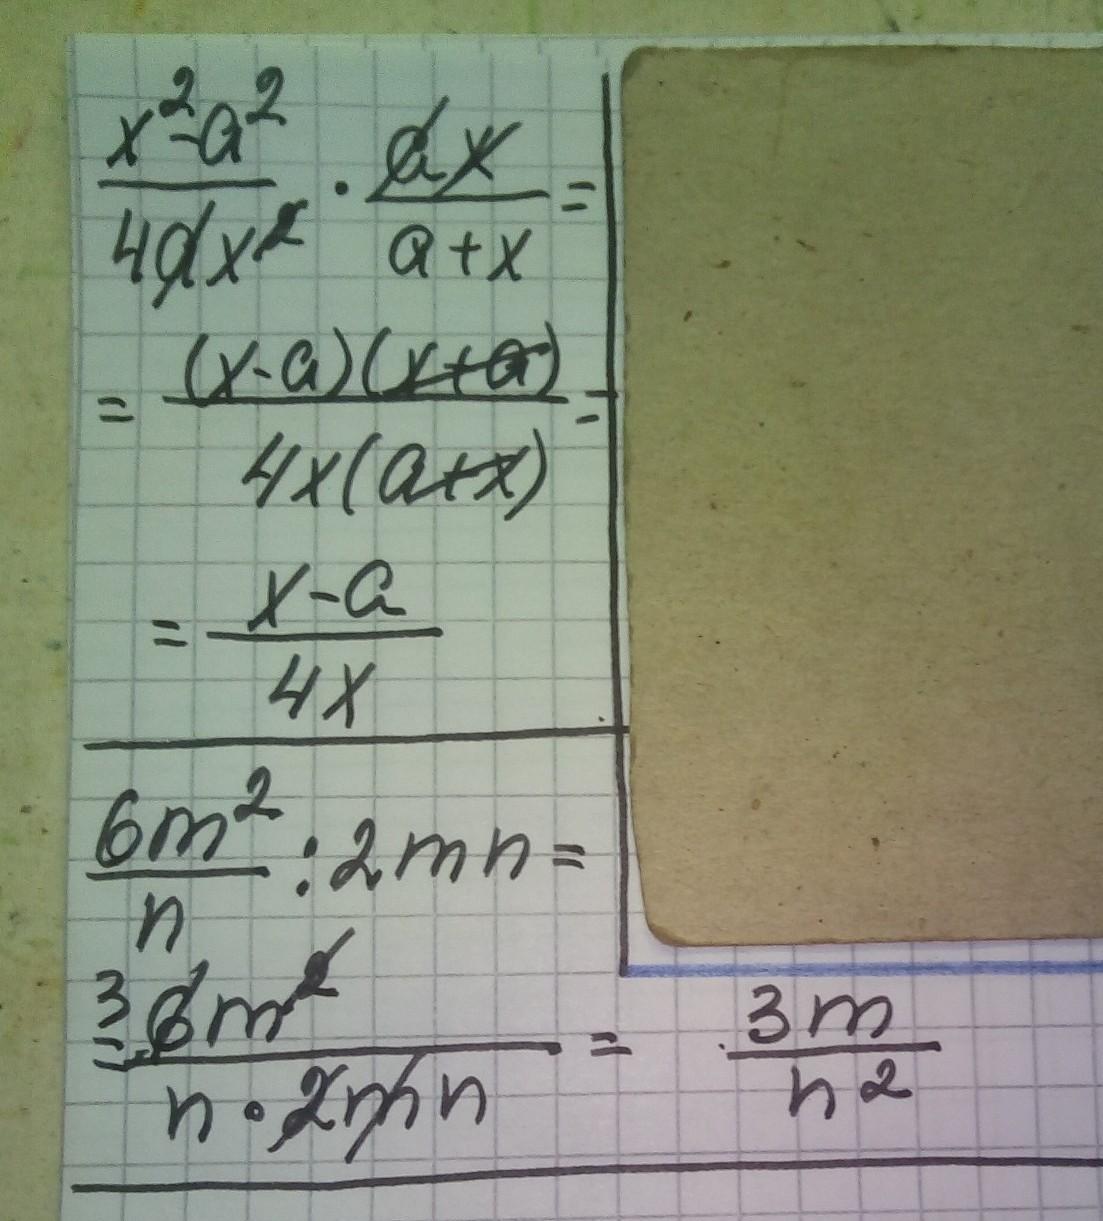 x²-a²/4ax² · ax/a+x =
= (x-a)(x+a)/4x(a+x) =
= x-a/4x
6m²/n : 2mn =
= 3 6m²/n · 2mn = 3m/n²